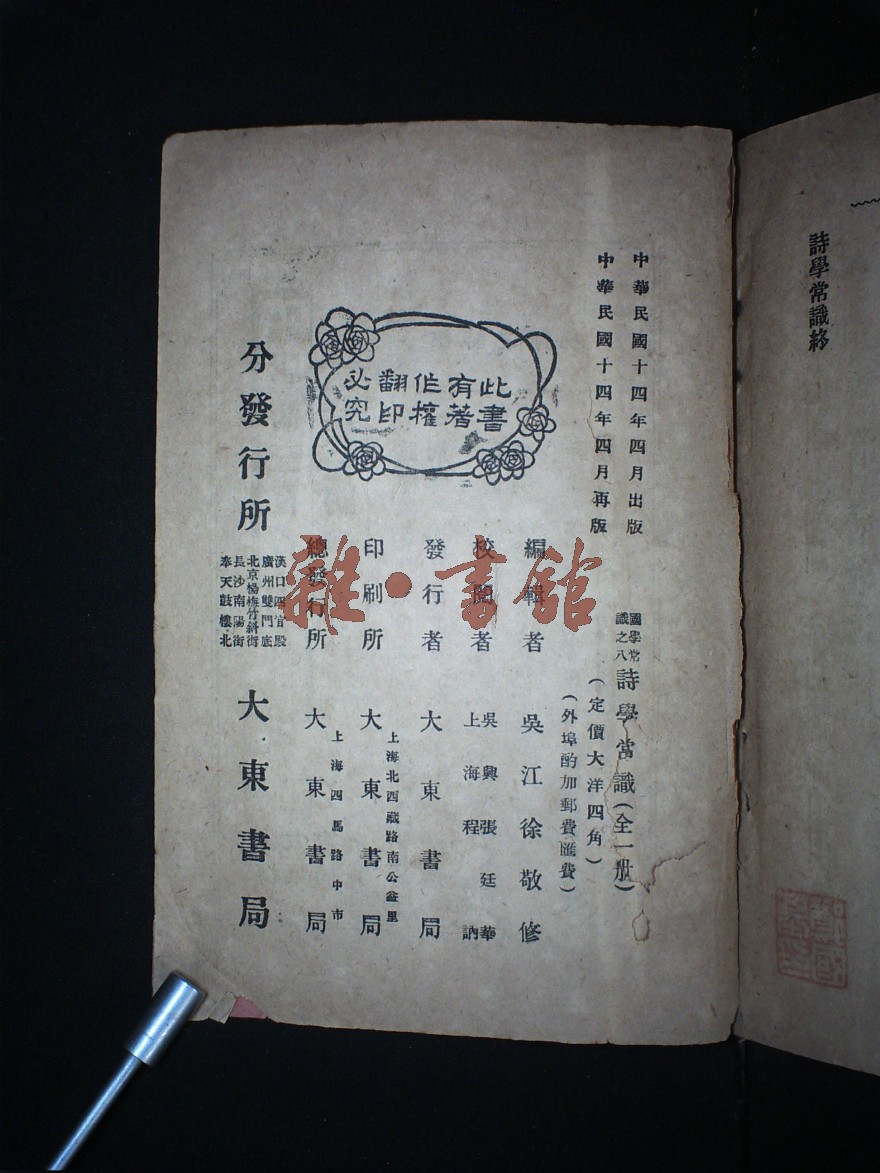 詩學常識終
中華民國十四年四月出版
中華民國十四年四月再版
國學常識之八
詩學常識(全一册)
(定價大洋四角)
(外埠酌加郵費匯費)
此書有著作權翻印必究
編輯者 吳江徐敬修
校閱者 吳興張廷華 上海程訥
發行者 大東書局
印刷所 上海北西藏路南公益里 大東書局
總發行所 上海四馬路中市 大東書局
分發行所
漢口四官殿
廣州雙門底
北京楊梅竹斜街
長沙南陽街
奉天鼓樓北
大東書局
雜·書館